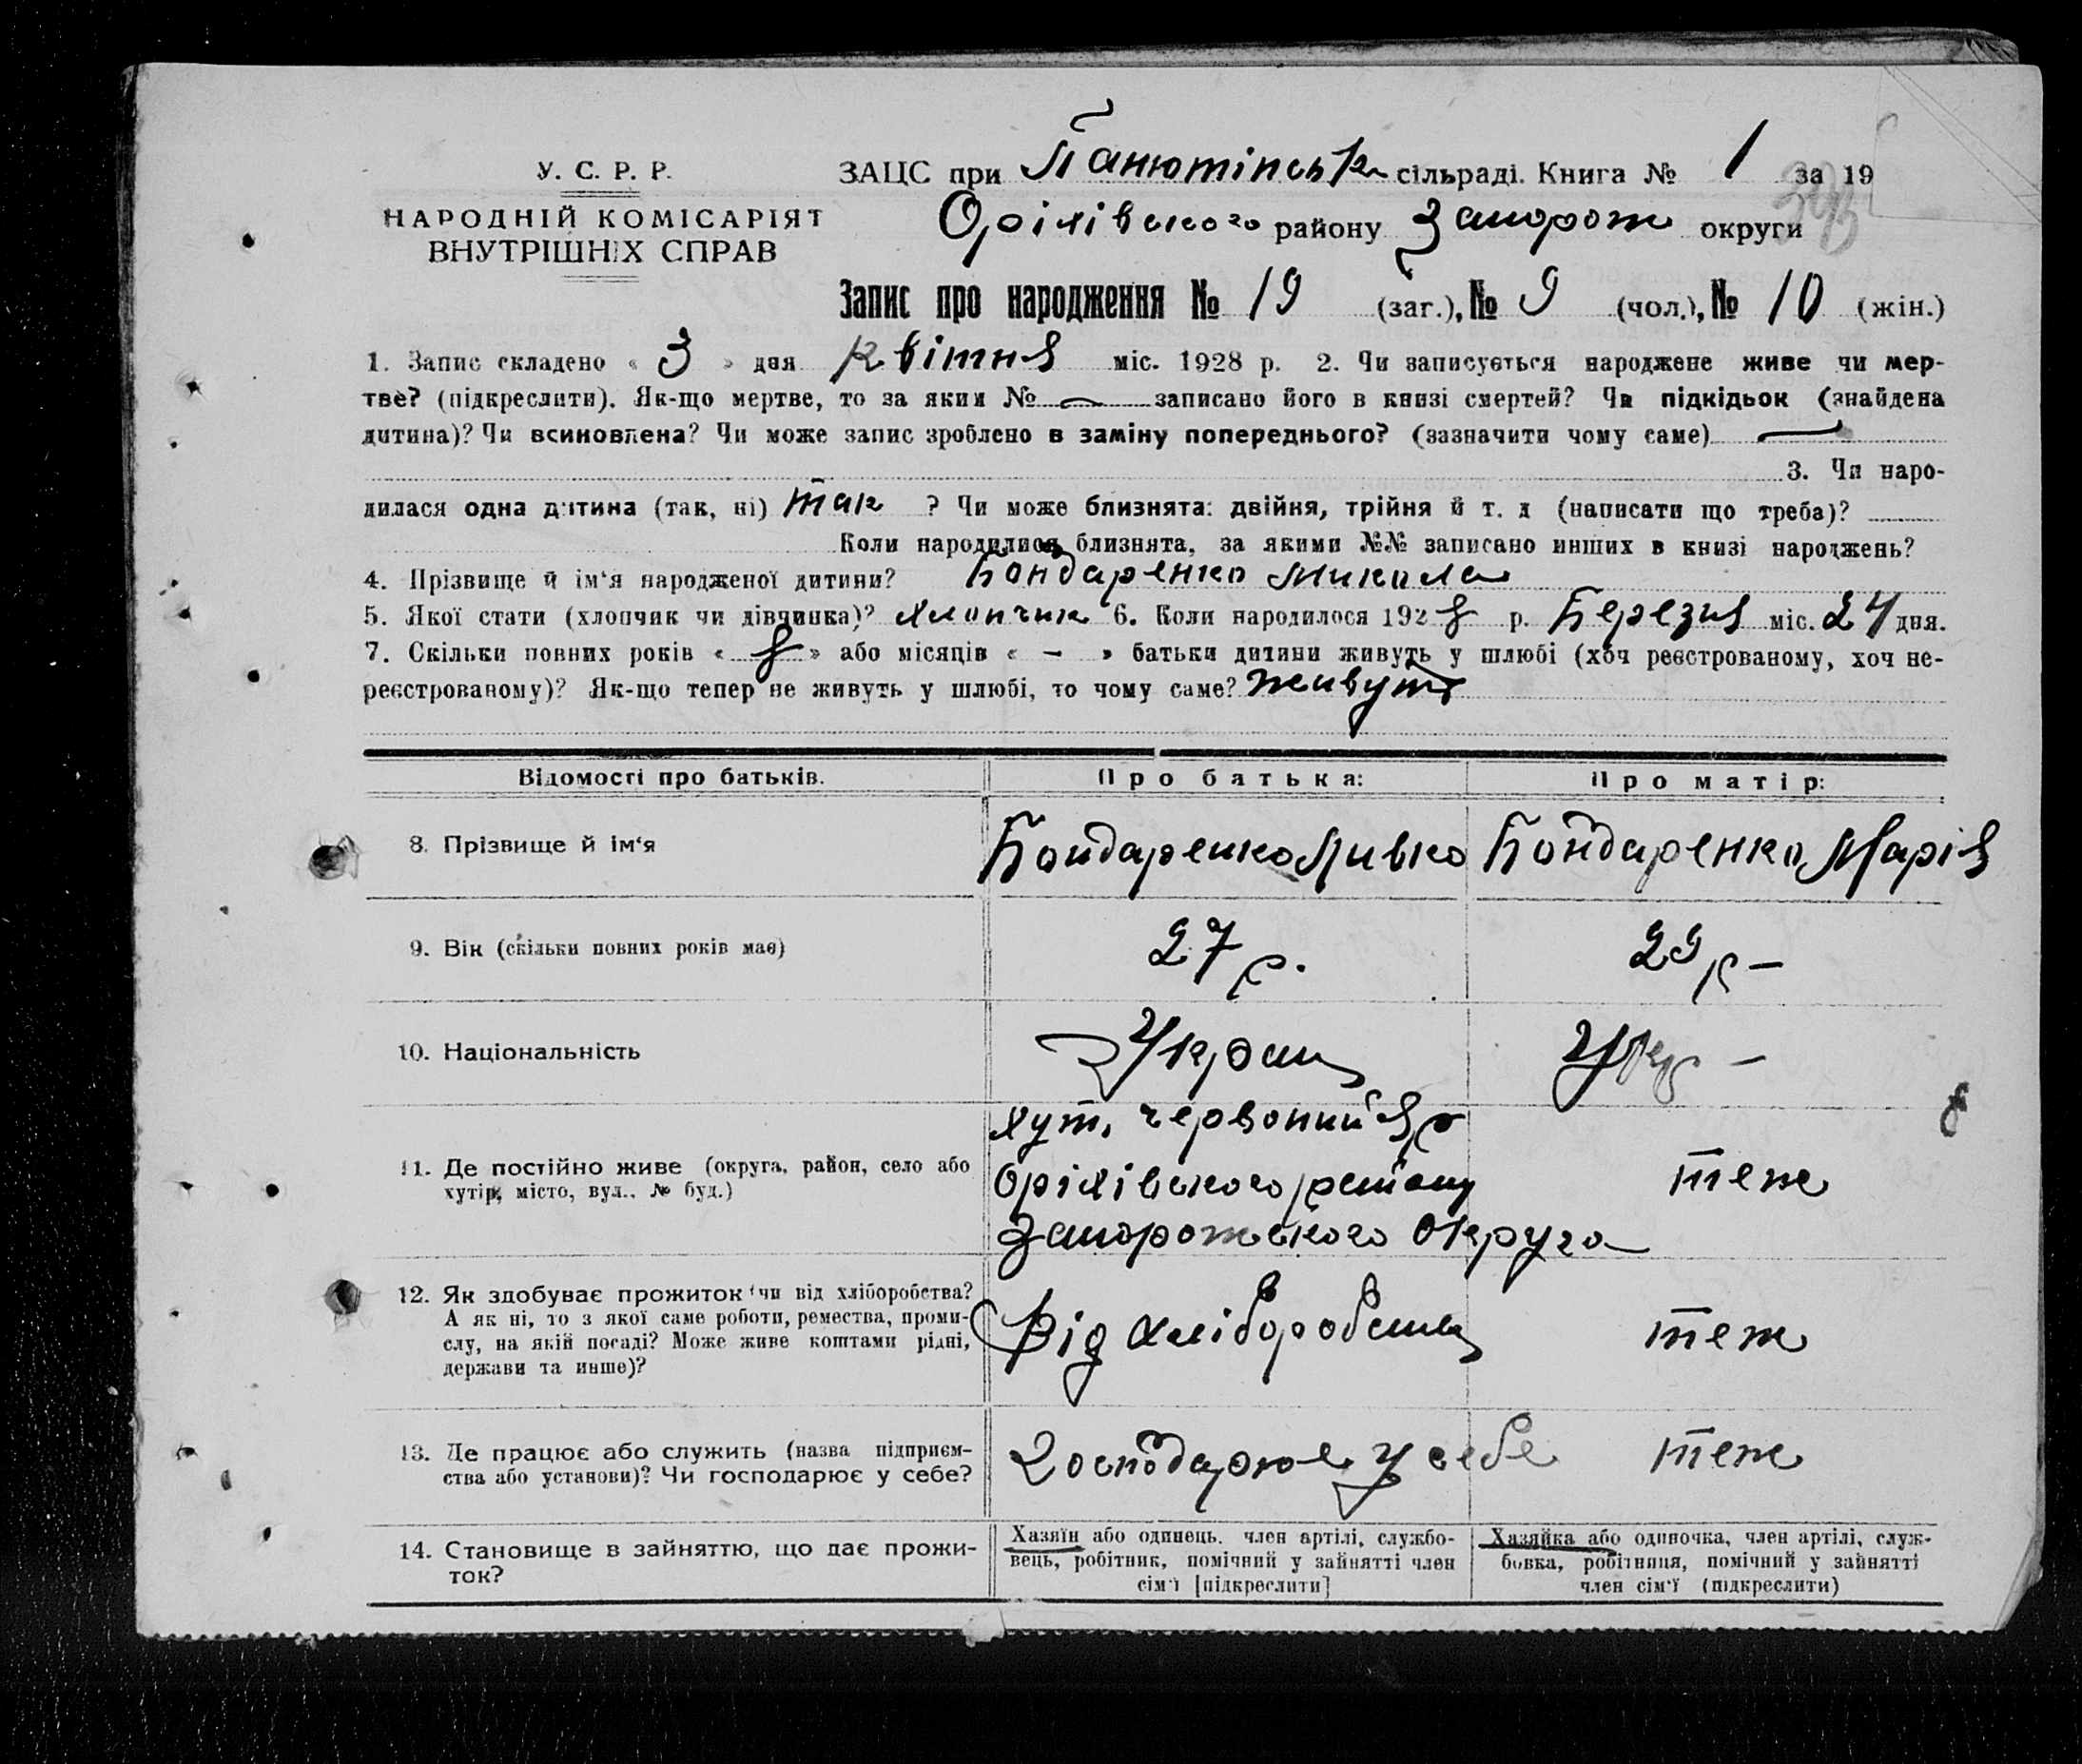 У. С. Р. Р.
НАРОДНІЙ КОМІСАРІЯТ
ВНУТРІШНІХ СПРАВ
ЗАЦС при Панютінськ сільраді. Книга № 1 за 19
Оріхівського району Запорож округи
Запис про народження № 19 (заг.), № 9 (чол.), № 10 (жін.)
1. Запис складено « 3 » дня квітня міс. 1928 р. 2. Чи записується народжене живе чи мер-
тве? (підкреслити). Як-що мертве, то за яким № — записано його в книзі смертей? Чи підкідьок (знайдена
дитина)? Чи всиновлена? Чи може запис зроблено в заміну попереднього? (зазначити чому саме) —
3. Чи наро-
дилася одна дитина (так, ні) так ? Чи може близнята: двійня, трійня й т. д (написати що треба)?
Коли народилися близнята, за якими №№ записано инших в книзі народжень?
4. Прізвище й ім'я народженої дитини? Бондаренко Микола
5. Якої стати (хлопчик чи дівчинка)? хлопчик 6. Коли народилося 1928 р. Березня міс. 24 дня.
7. Скільки повних років « 8 » або місяців « – » батьки дитини живуть у шлюбі (хоч реєстрованому, хоч не-
реєстрованому)? Як-що тепер не живуть у шлюбі, то чому саме? живуть
Відомості про батьків. Про батька: Про матір:
8. Прізвище й ім'я Бондаренко Бондаренко Марія
9. Вік (скільки повних років має) 27 р. 29 р –
10. Національність Україн Укр –
11. Де постійно живе (округа, район, село або
хутір, місто, вул.. № буд.)
хут. червоний Яр
Оріхівського району
Запорожського Округа
теж
12. Як здобуває прожиток (чи від хліборобства?
А як ні, то з якої саме роботи, ремества, проми-
слу, на якій посаді? Може живе коштами рідні,
держави та инше)?
Від хліборобства теж
13. Де працює або служить (назва підприєм-
ства або установи)? Чи господарює у себе?
Господарює у себе теж
14. Становище в зайняттю, що дає прожи-
ток?
Хазяїн або одинець. член артілі, службо-
вець, робітник, помічний у зайнятті член
сім'ї [підкреслити]
Хазяйка або одиночка, член артілі, служ-
бовка, робітниця, помічний у зайнятті
член сім'ї (підкреслити)